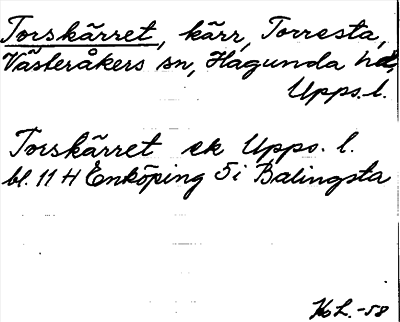 Torskärret, kärr, Torresta,
Västeråkers sn, Hagunda hd,
Upps. l.
Torskärret ek Upps. l.
bl. 11 H Enköping 5i Balingsta
-58